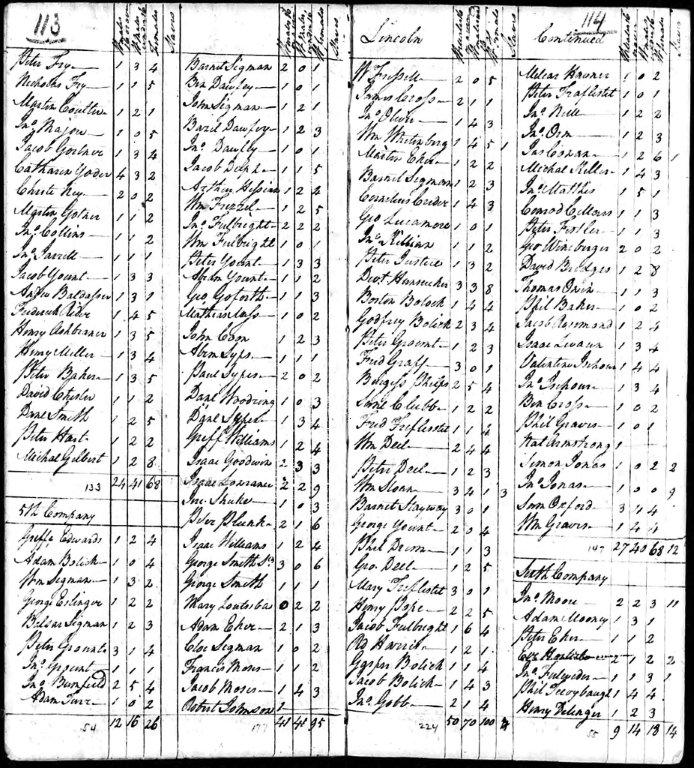 113
Peter Fry 1 3 4
Nicholas Fry 1 1 5
Martin Coulter 1 2 1
Jno Major 1 0 5
Jacob Gortner 1 3 4
Catharen Yoder 4 3 2
Christr Key 2 0 2
Martin Gotner 1 1 2
Jno Collins 1 2
Jno Jarrell 1 1 1
Jacob Yount 1 3 3
Andrw Baldassor 1 3 1
Frederick Rider 1 4 5
Henry Ashbraner 1 3 5
Henry Miller 1 3 4
Peter Baker 1 3 5
David Chester 1 1 2
Danl Smith 1 2 5
Peter Hart 1 2 2
Michal Gilbert 1 2 8
133 24 41 68
5th Company
Griffe Edwards 1 2 4
Adam Bolick 1 0 4
Wm Sigman 1 3 2
George Eslinger 1 2 2
Balser Sigman 1 2 3
Peter Grount 3 1 4
Jno Grount 1 1 1
Jno Bumfield 2 5 4
Adam Turr 1 0 2
54 12 16 26
Males
Females
Slaves
Barnet Sigman 2 0 1
Ben Dawfey 1 0 1
John Sigman 1 2 1
Bazil Dawfery 1 2 3
Jno Dawfly 1 0 1
Jacob 1 1 5
Hessian 1 2 4
Wm Frezel 1 2 5
Jno Fulbright 2 2 2
Wm Fulbright 1 0 1
Peter Yount 1 3 3
Abram Yount 1 1 2
Geo Goforth 1 1 3
Mathias Cass 1 0 2
John Coon 1 2 3
Abrm Syps 1 1 1
Paul Sypes 2 0 2
Danl Wooding 1 0 3
Danl Sypes 1 3 4
Griffh Williams 1 2 4
Isaac Goodwin 2 3 3
Isaac Lowrance 2 2 9
Jno Shuke 1 0 3
Peter Plunk 2 1 6
Isaac Williams 1 2 4
George Smith Sr 3 0 6
George Smith 1 1 1
Mary Loutesbas 0 2 2
Adam Eker 2 1 3
Cloe Sigman 1 0 2
Francis Moses 1 1 2
Jacob Moses 1 4 3
Robert Johnson 1
177 41 41 95
Lincoln
W Fressell 2 0 5
James Cross 2 1 1
Jno Oliver 1 4 3
Wm Whitenberg 1 4 5 1
Martin Eker 1 2 2
Barnet Sigman 1 2 3
Cornelius Ceider 1 4 3
Geo Lucamore 1 0 1
Jno Killian 1 1 2
Peter Justice 1 3 2
Devt Hunsucker 3 3 8
Boston Bolock 1 4 4
Godfrey Bolick 2 3 4
Peter Grount 1 2 3
Fred Graff 3 0 1
Burgess Phelps 2 5 4
Saml Clubb 1 2 2
Fred Treflestet 1 1 4
Wm Deel 2 4 4
Peter Deel 1 2 3
Wm Sloan 3 4 1 3
Barnet Slayway 3 0 1
George Yount 2 0 4
Phil Drum 1 1 3
Geo Deel 1 2 5
Mary Treflestet 3 0 1
Henry Pope 2 2 5
Jacob Fulbright 1 6 4
Rd Harris 1 2 1
Gasper Bolick 1 1 4
Jacob Bolick 1 4 3
Jno Gobb 2 1 4
224 50 70 100 4
114
Continued
Milcas Hauner 1 0 2
Peter Traflestet 1 0 1
Jno Keell 1 2 2
Jno Orn 1 2 3
Jas Cowan 1 2 6 1
Michal Keller 1 4 3
Jno Matthis 1 5 1
Conrod Cellows 1 1 3
Peter Fisler 1 1 3
Geo Wineburger 2 0 2
David Bridges 1 2 8
Thomas Owin 1 1 3
Phil Baker 1 0 2
Jacob Raymond 1 2 4
Isaac Livaun 1 3 4
Valentine Ischour 1 4 4
Jno Ischour 1 3 4
Ben Cross 1 0 2
Phil Graves 1 0 1
Nat Armstrong 1
Simon Jonas 1 0 2 2
Jno Jonas 1 0 0 9
Sam Oxford 3 4 4
Wm Graves 1 4 4
147 27 40 68 12
Sixth Company
Jno Moore 2 2 3 11
Adam Mooney 1 3 1
Peter Eker 1 1 2
2 1 2 2
Jno Fulwider 1 1 3 1
Phil Frevybaugh 1 4 4
Henry Delinger 1 2 3
55 9 14 18 14